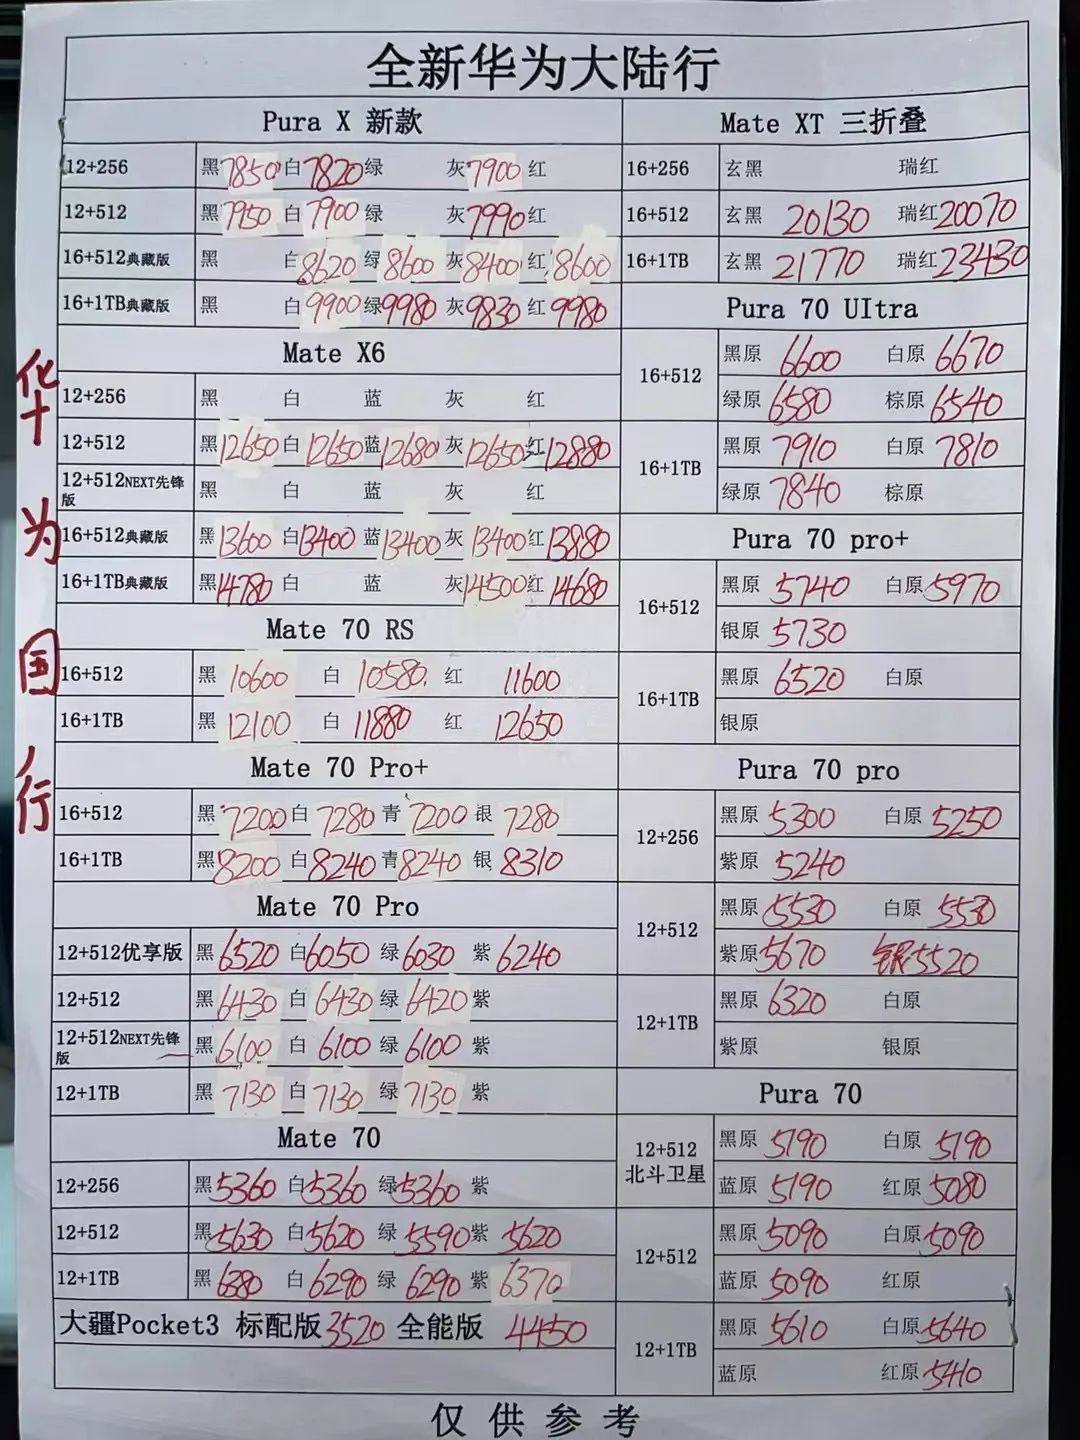 全新华为大陆行
Pura X 新款
12+256 黑7850 白7820 绿 灰7900 红
12+512 黑7950 白7900 绿 灰7990 红
16+512典藏版 黑 白8620 绿8600 灰8400 红8600
16+1TB典藏版 黑 白9900 绿9980 灰9830 红9980
Mate X6
12+256 黑 白 蓝 灰 红
12+512 黑12650 白12650 蓝12680 灰12650 红12880
12+512NEXT先锋版 黑 白 蓝 灰 红
16+512典藏版 黑13600 白13400 蓝13400 灰13400 红13880
16+1TB典藏版 黑14780 白 蓝 灰14500 红14680
Mate 70 RS
16+512 黑 10600 白 10580 红 11600
16+1TB 黑 12100 白 11880 红 12650
Mate 70 Pro+
16+512 黑7200 白7280 青7200 银7280
16+1TB 黑8200 白8240 青8240 银8310
Mate 70 Pro
12+512优享版 黑6520 白6050 绿6030 紫6240
12+512 黑6430 白6430 绿6420 紫
12+512NEXT先锋版 黑6100 白6100 绿6100 紫
12+1TB 黑7130 白7130 绿7130 紫
Mate 70
12+256 黑5360 白5360 绿5360 紫
12+512 黑5630 白5620 绿5590 紫5620
12+1TB 黑6380 白6290 绿6290 紫6370
大疆Pocket3 标配版3520 全能版 4450
Mate XT 三折叠
16+256 玄黑 瑞红
16+512 玄黑 20130 瑞红20070
16+1TB 玄黑 21770 瑞红23430
Pura 70 UItra
16+512
黑原 6600 白原 6670
绿原 6580 棕原 6540
16+1TB
黑原 7910 白原 7810
绿原 7840 棕原
Pura 70 pro+
16+512
黑原 5740 白原5970
银原 5730
16+1TB
黑原 6520 白原
银原
Pura 70 pro
12+256
黑原 5300 白原 5250
紫原 5240
12+512
黑原 5530 白原 5530
紫原5670 银5520
12+1TB
黑原 6320 白原
紫原 银原
Pura 70
12+512
北斗卫星
黑原 5190 白原 5190
蓝原 5190 红原5080
12+512
黑原5090 白原5090
蓝原5090 红原
12+1TB
黑原 5610 白原5640
蓝原 红原5410
仅供参考
华为国行